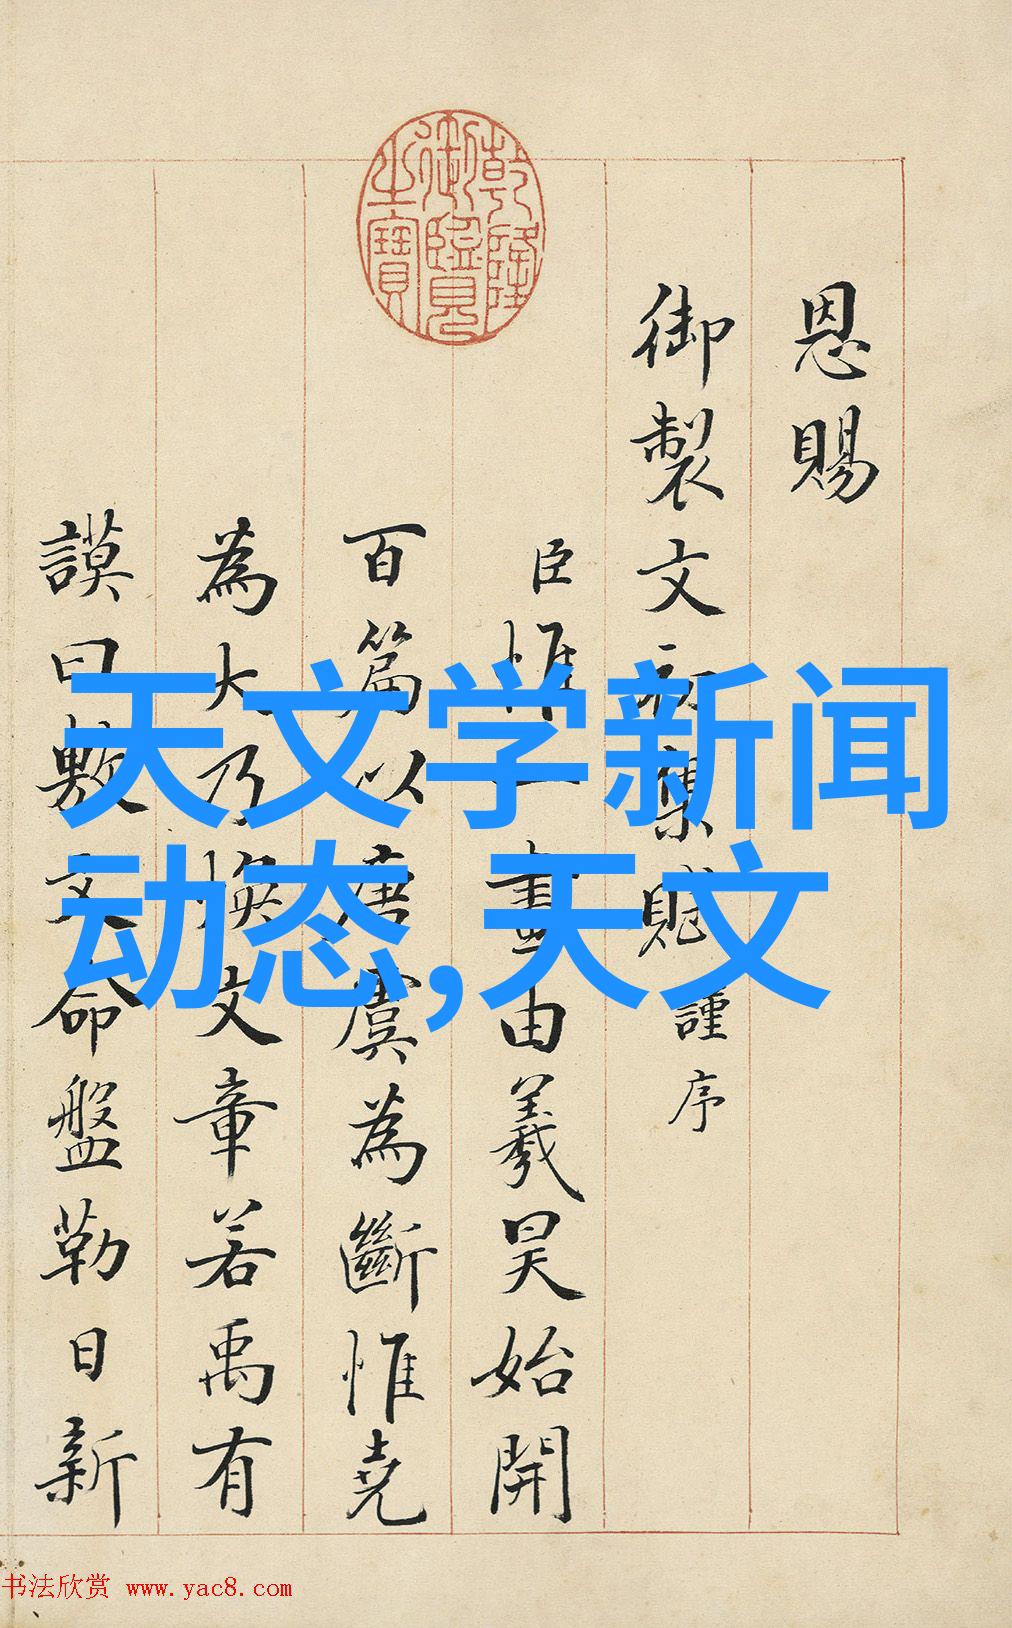 乾隆
御覽
之寶
恩賜
御製文初集賦謹序
臣惟一畫由羲昊始開
百篇以唐虞為斷惟堯
為大乃煥文章若禹有
謨曰敷文命盤勒日新
天文学新闻
动态,天文
书法欣赏 www.yac8.com